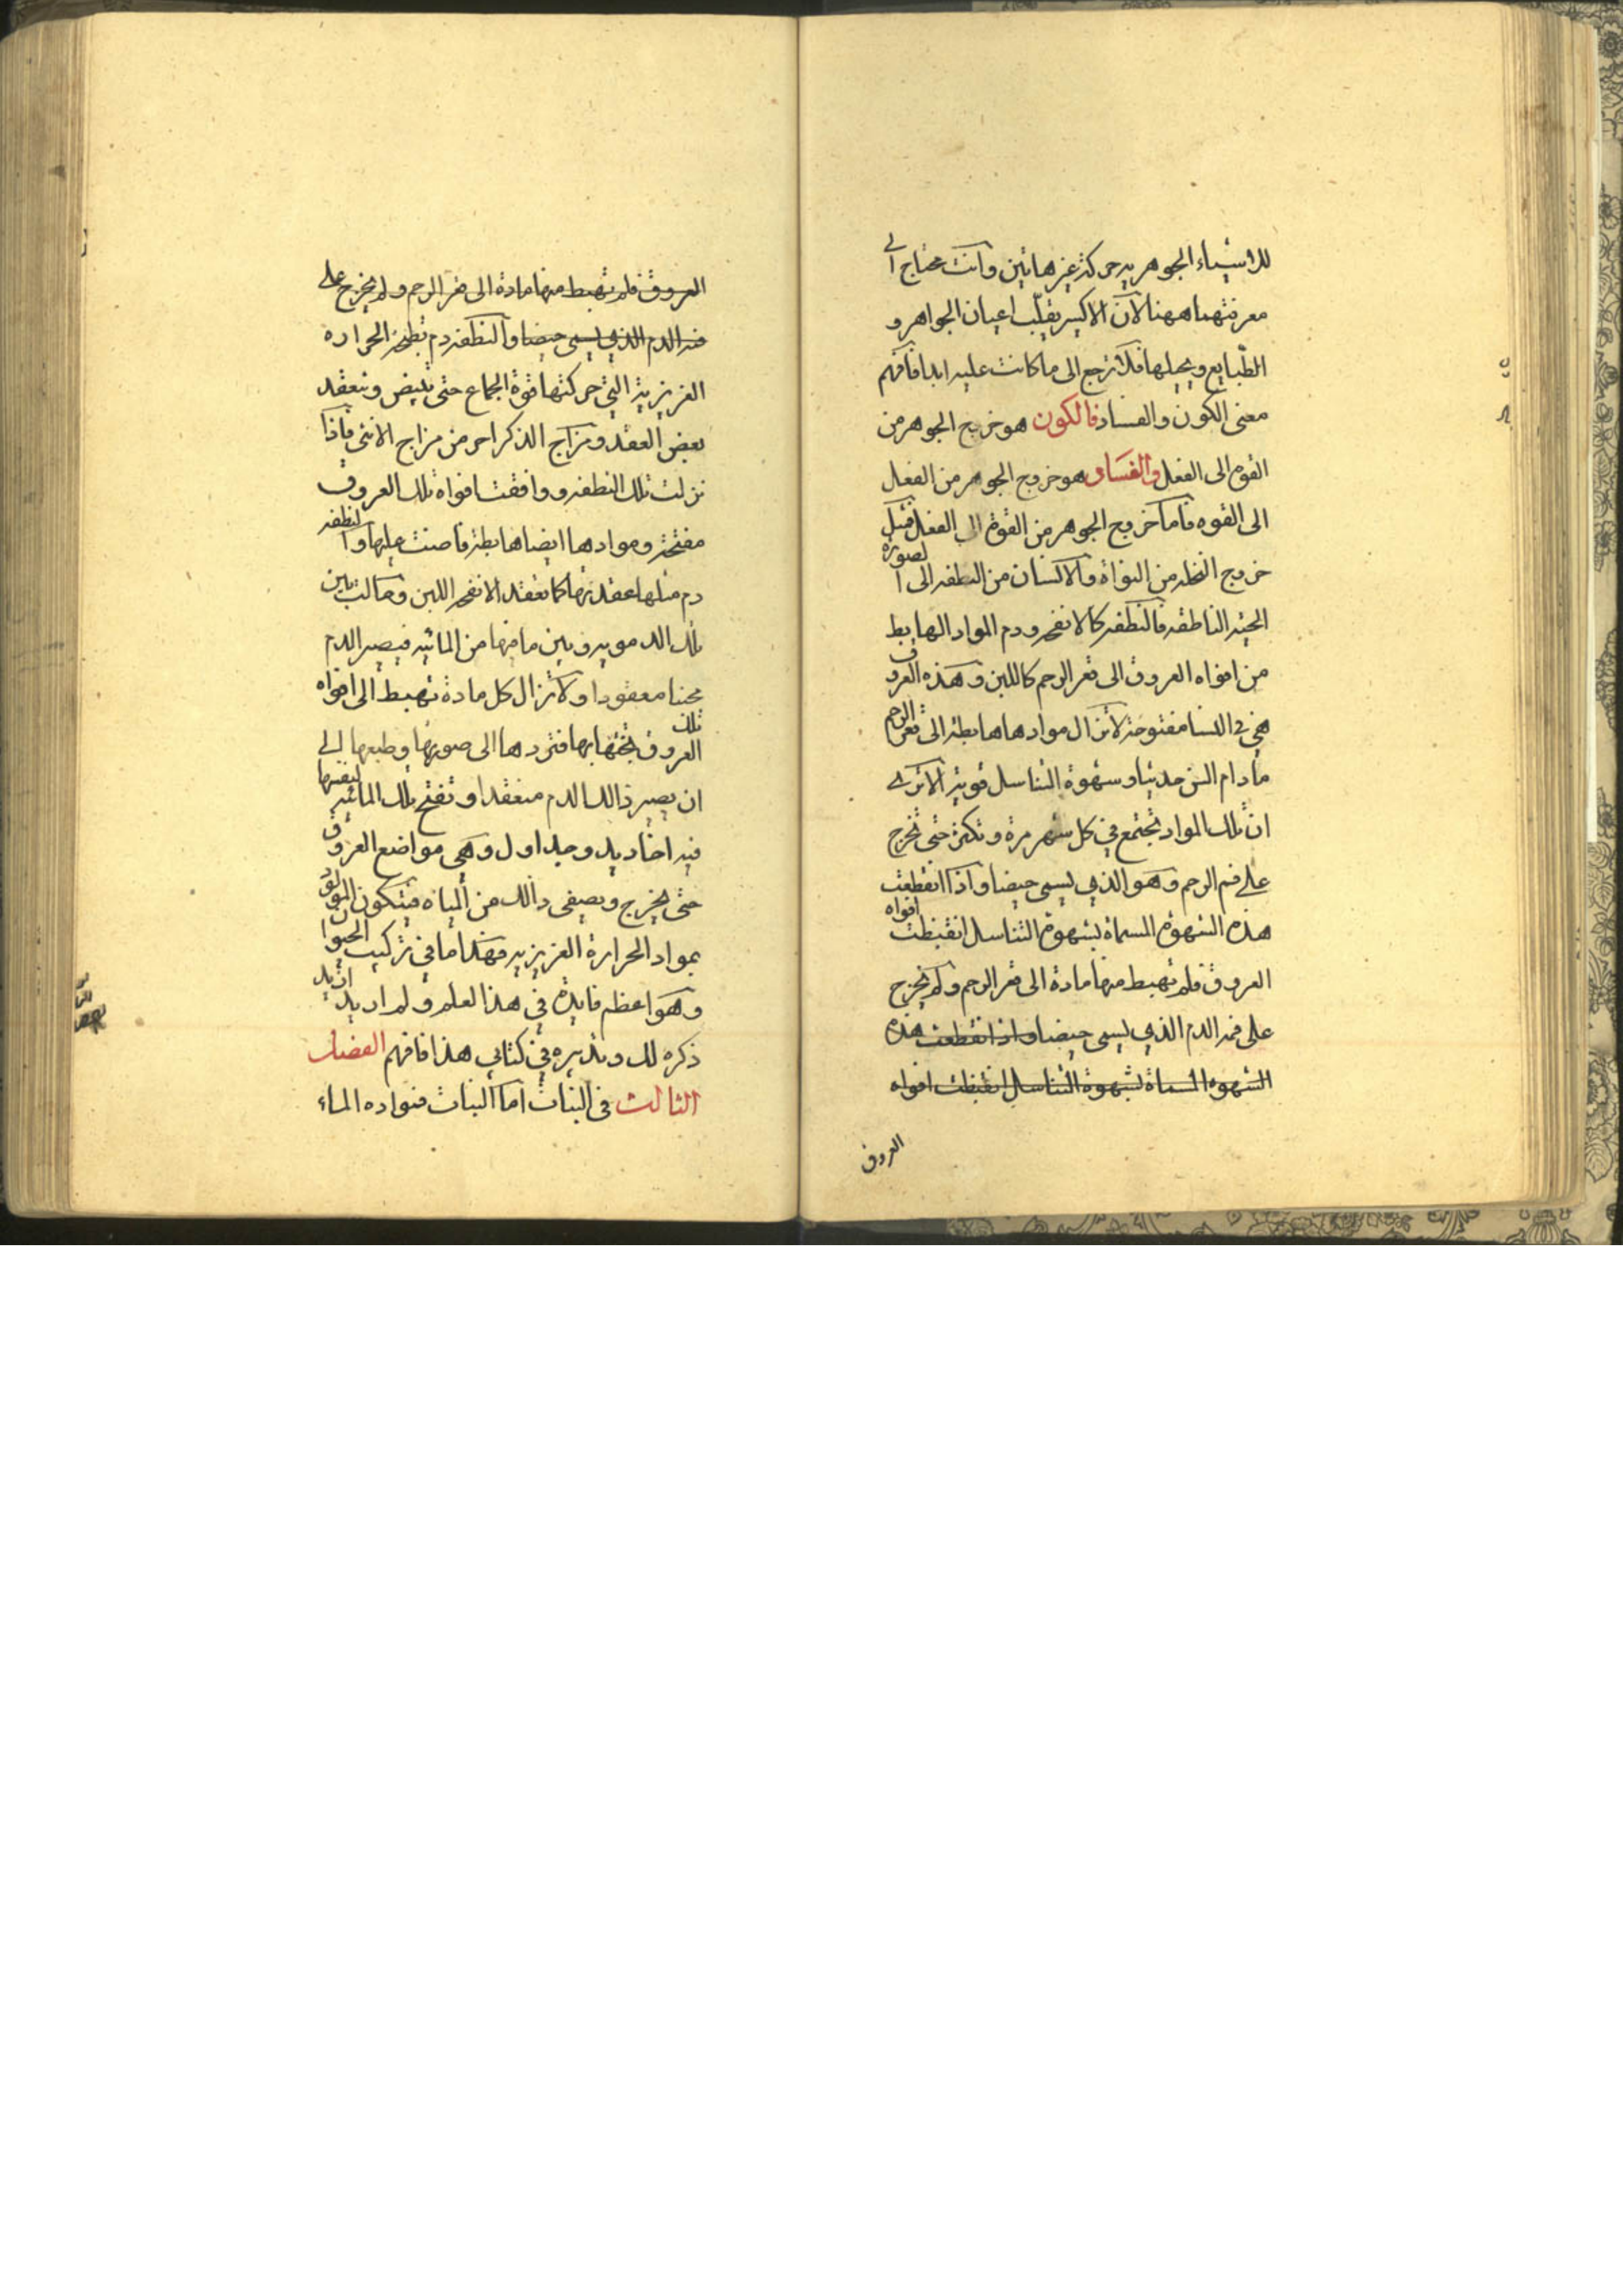 للاشياء الجوهريه حركة غير هاتين وانت محتاج الى
معرفتهما ههنا لان الاكسير يقلب اعيان الجواهر و
الطبايع ويحيلها فلا ترجع الى ما كانت عليه ابدا فافهم
معنى الكون والفساد فالكون هو خروج الجوهر من
القوه الى الفعل والفساد هو خروج الجوهر من الفعل
الى القوه فاما خروج الجوهر من القوة الى الفعل فمثل
خروج النخله من النواة والانسان من النطفه الى الصورة
الحيه الناطقه فالنطفه كالانفحه ودم المواد الهابط
من افواه العروق الى قعر الرحم كاللبن وهذه العروق
هي في النسا مفتوحة لا تزال موادها هابطة الى قعر الرحم
مادام السن حديثا وشهوة التناسل قوية الا ترى
ان تلك المواد تجتمع في كل شهر مرة وتكثر حتى تخرج
على فم الرحم وهو الذي يسمى حيضا واذا انقطعت
هذه الشهوة المسماة بشهوة التناسل انقبضت افواه
العروق فلم تهبط منها مادة الى قعر الرحم ولم يخرج
على فمه الدم الذي يسمى حيضا واذا انقطعت هذه
الشهوه المسماة بشهوة التناسل انقبظت افواه
العروق
العروق فلم تهبط منها مادة الى قعر الرحم ولم يخرج على
فمه الدم الذي يسمى حيضا والنطفه دم تطبخه الحراره
الغريزية التي حركتها قوة الجماع حتى تبيض وتنعقد
بعض العقد ومزاج الذكر احر من مزاج الانثى فاذا
نزلت تلك النطفه ووافقت افواه تلك العروق
مفتحة وموادها ايضا هابطة فاصنت عليها والنطفه
دم مثلها عقدتها كما تعقد الانفحه اللبن وحالت بين
تلك الدمويه وبين ما فيها من المائيه فيصير الدم
مجبنا معقودا ولا تزال كل مادة تهبط الى افواه
تلك
العروق بها فتردها الى صورتها وطبعها الى
ان يصير ذالك الدم منعقدا وتفتح تلك المائية لنفسها
فيه اخاديد وجداول وهي مواضع العروق
حتى يخرج ويصفى ذالك من المياه فيتكون المولود
بمواد الحرارة الغريزيه فهذا ما في تركيب الحيوان
وهو اعظم فايدة في هذا العلم ولم اريد ازيد
ذكره لك وتدبيره في كتابي هذا فافهم الفصل
الثالث في النبات اما النبات فمواده الماء